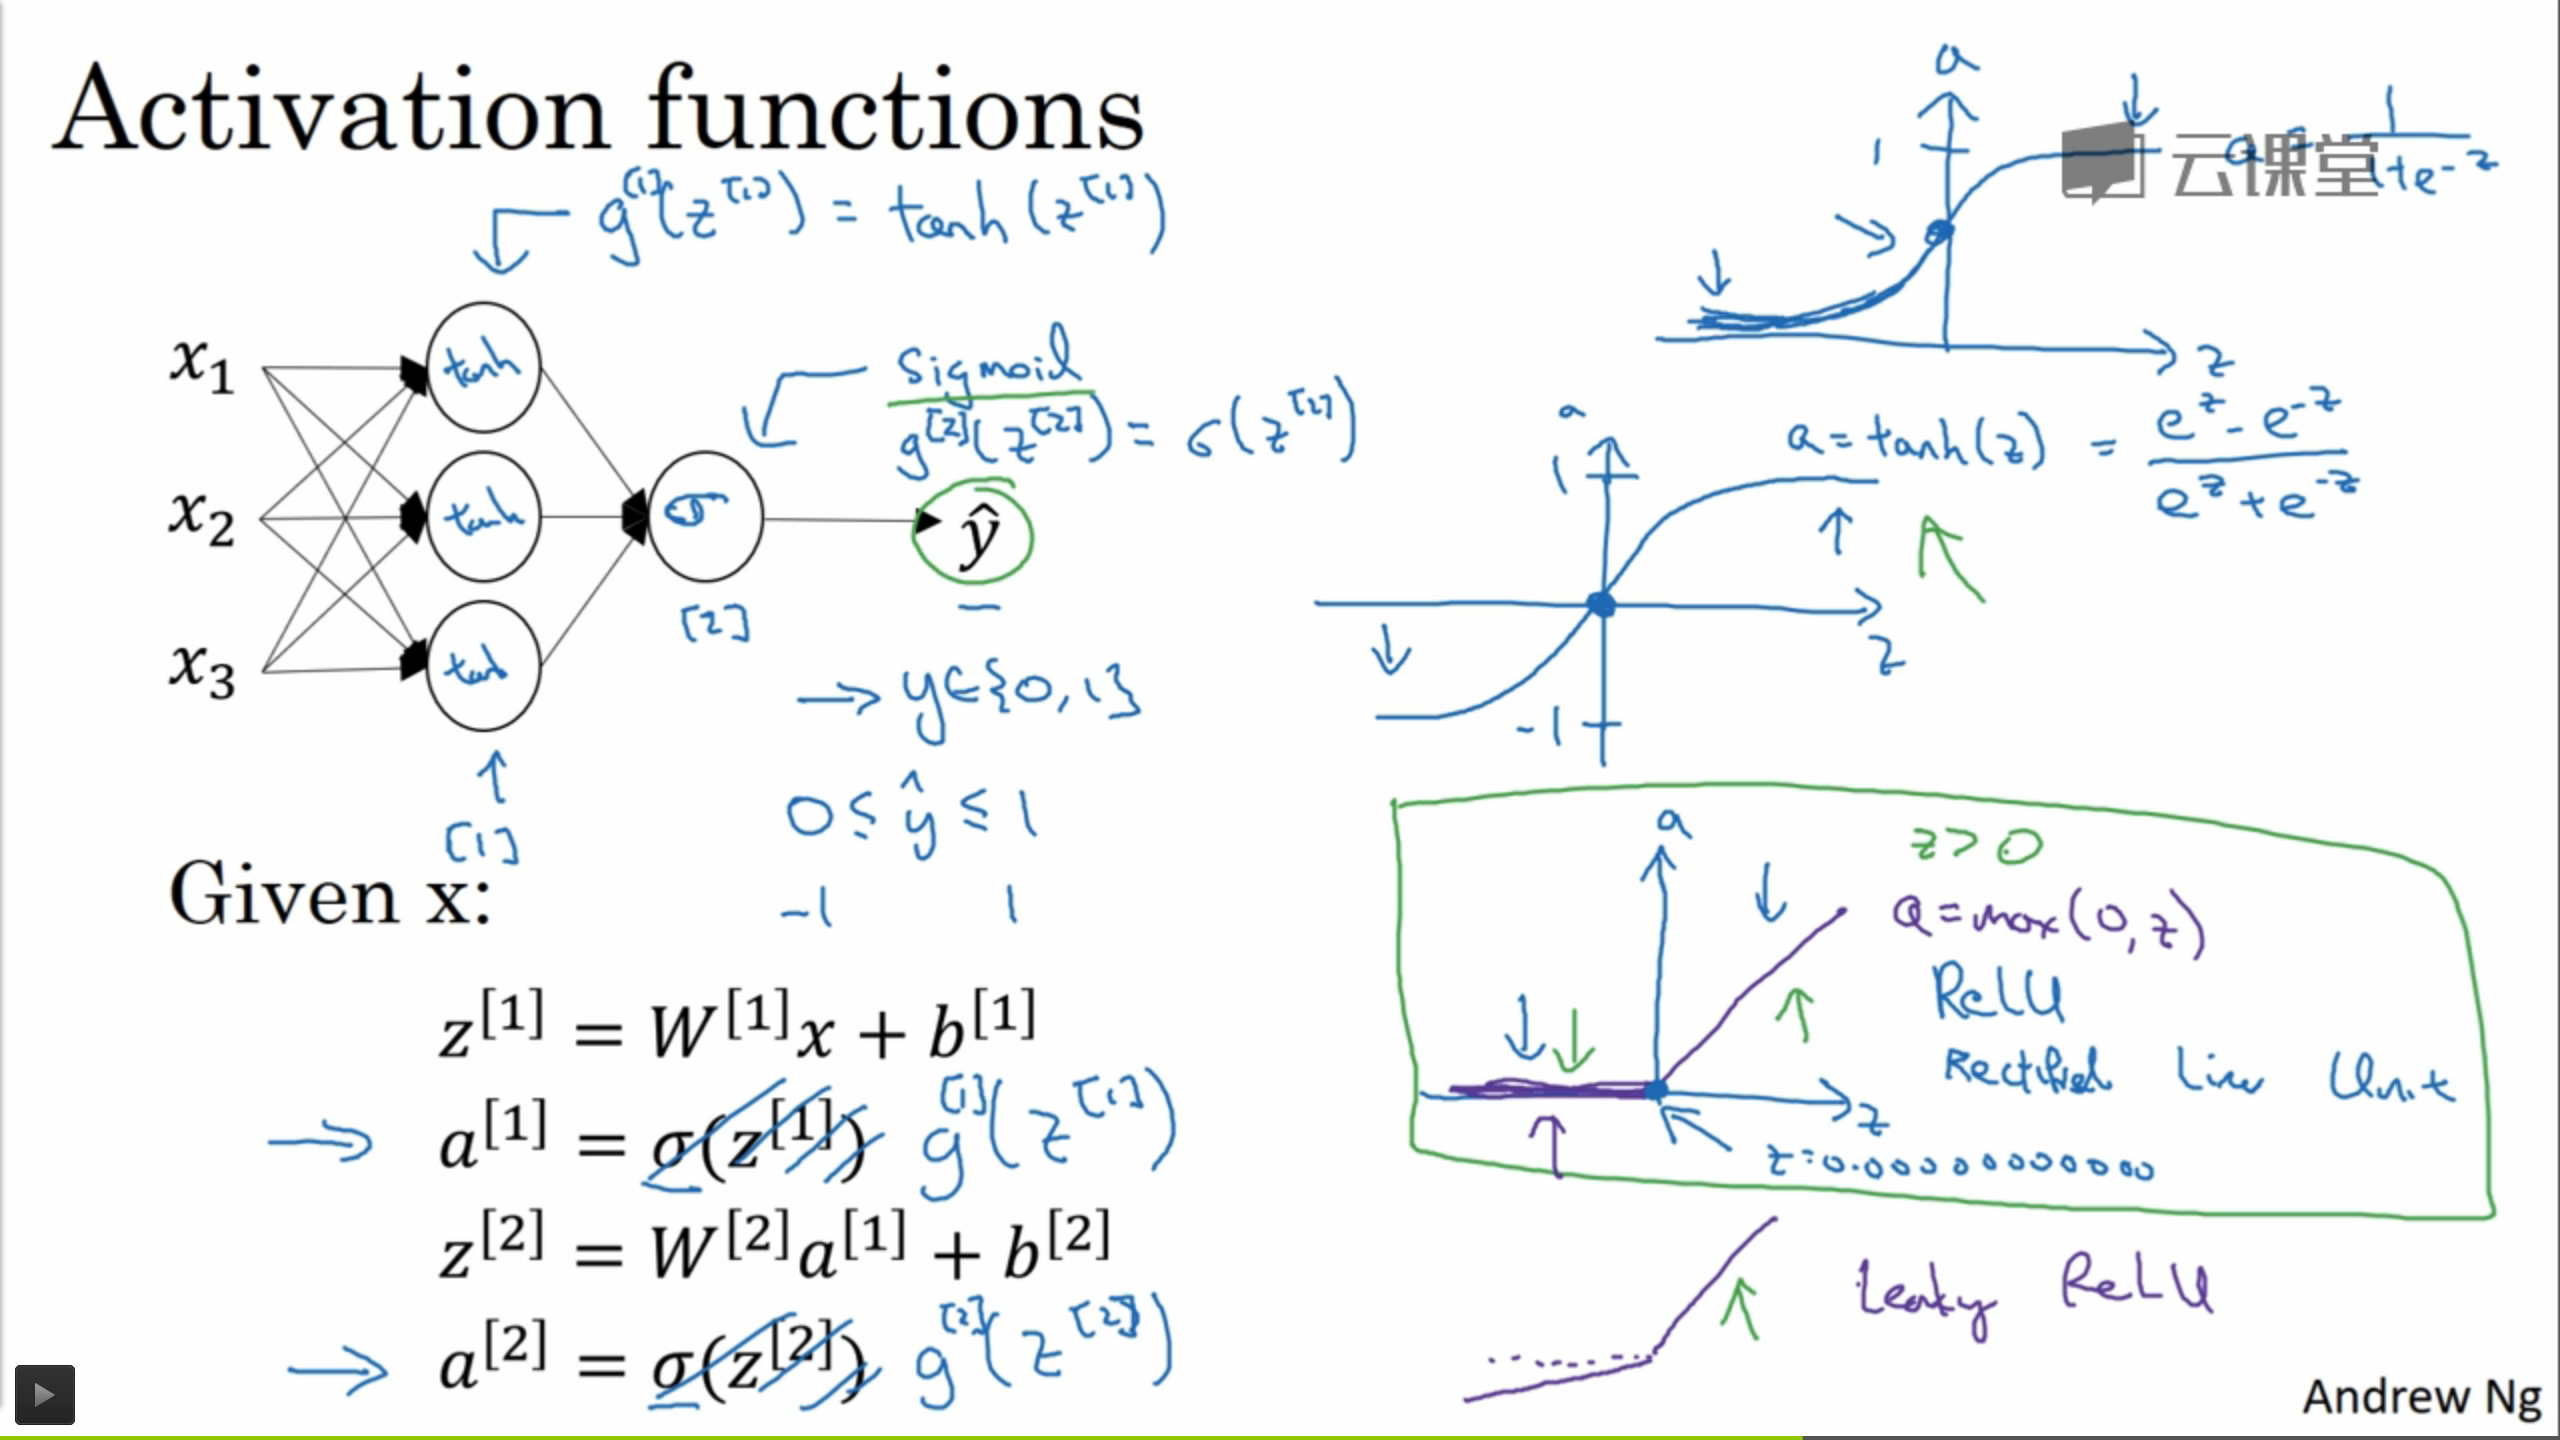 Activation functions
g^[1](z^[1]) = tanh(z^[1])
x₁
x₂
x₃
tanh
tanh
tanh
[1]
σ
[2]
sigmoid
g^[2](z^[2]) = σ(z^[2])
ŷ
→ y∈{0,1}
0 ≤ ŷ ≤ 1
-1 1
Given x:
z^[1] = W^[1]x + b^[1]
→ a^[1] = σ(z^[1]) g^[1](z^[1])
z^[2] = W^[2]a^[1] + b^[2]
→ a^[2] = σ(z^[2]) g^[2](z^[2])
a
1
a = 1/(1+e^-z)
云课堂
z
a
1
a = tanh(z) = (e^z - e^-z)/(e^z + e^-z)
z
-1
a
z>0
a = max(0,z)
ReLU
Rectified Linear Unit
z
z=0.000000000000
Leaky ReLU
Andrew Ng